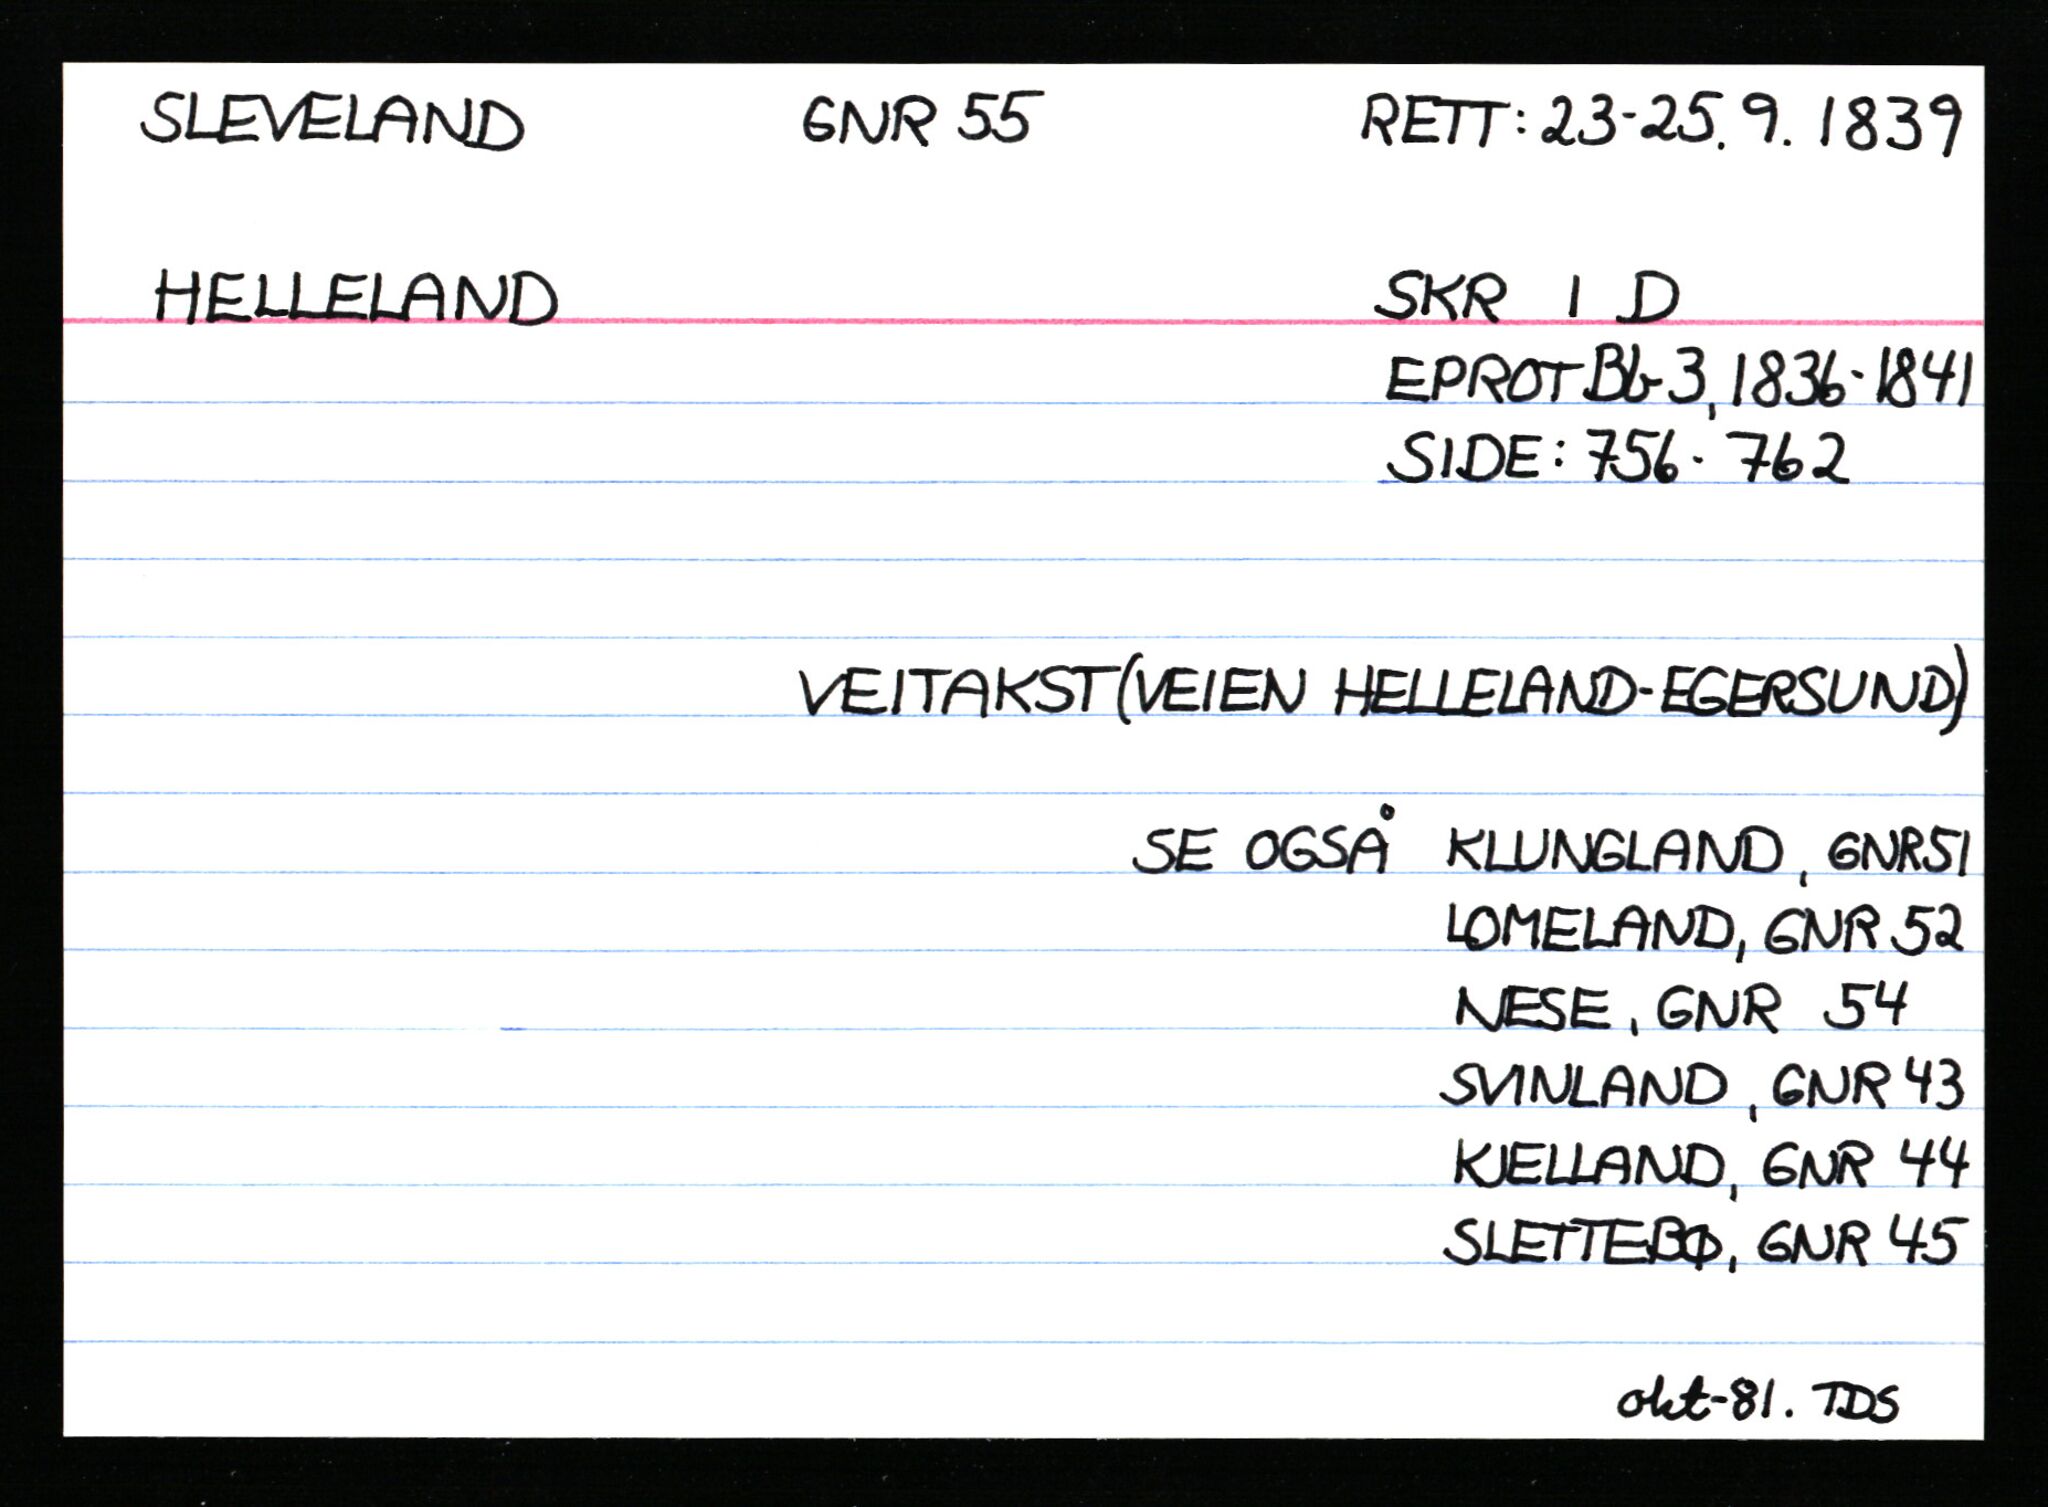 SLEVELAND GNR 55 RETT: 23-25.9. 1839
HELLELAND SKR I D
EPROT Bb 3, 1836-1841
SIDE: 756-762
VEITAKST (VEIEN HELLELAND-EGERSUND)
SE OGSÅ KLUNGLAND, GNR 51
LOMELAND, GNR 52
NESE, GNR 54
SVINLAND, GNR 43
KJELLAND, GNR 44
SLETTEBØ, GNR 45
okt-81. TDS